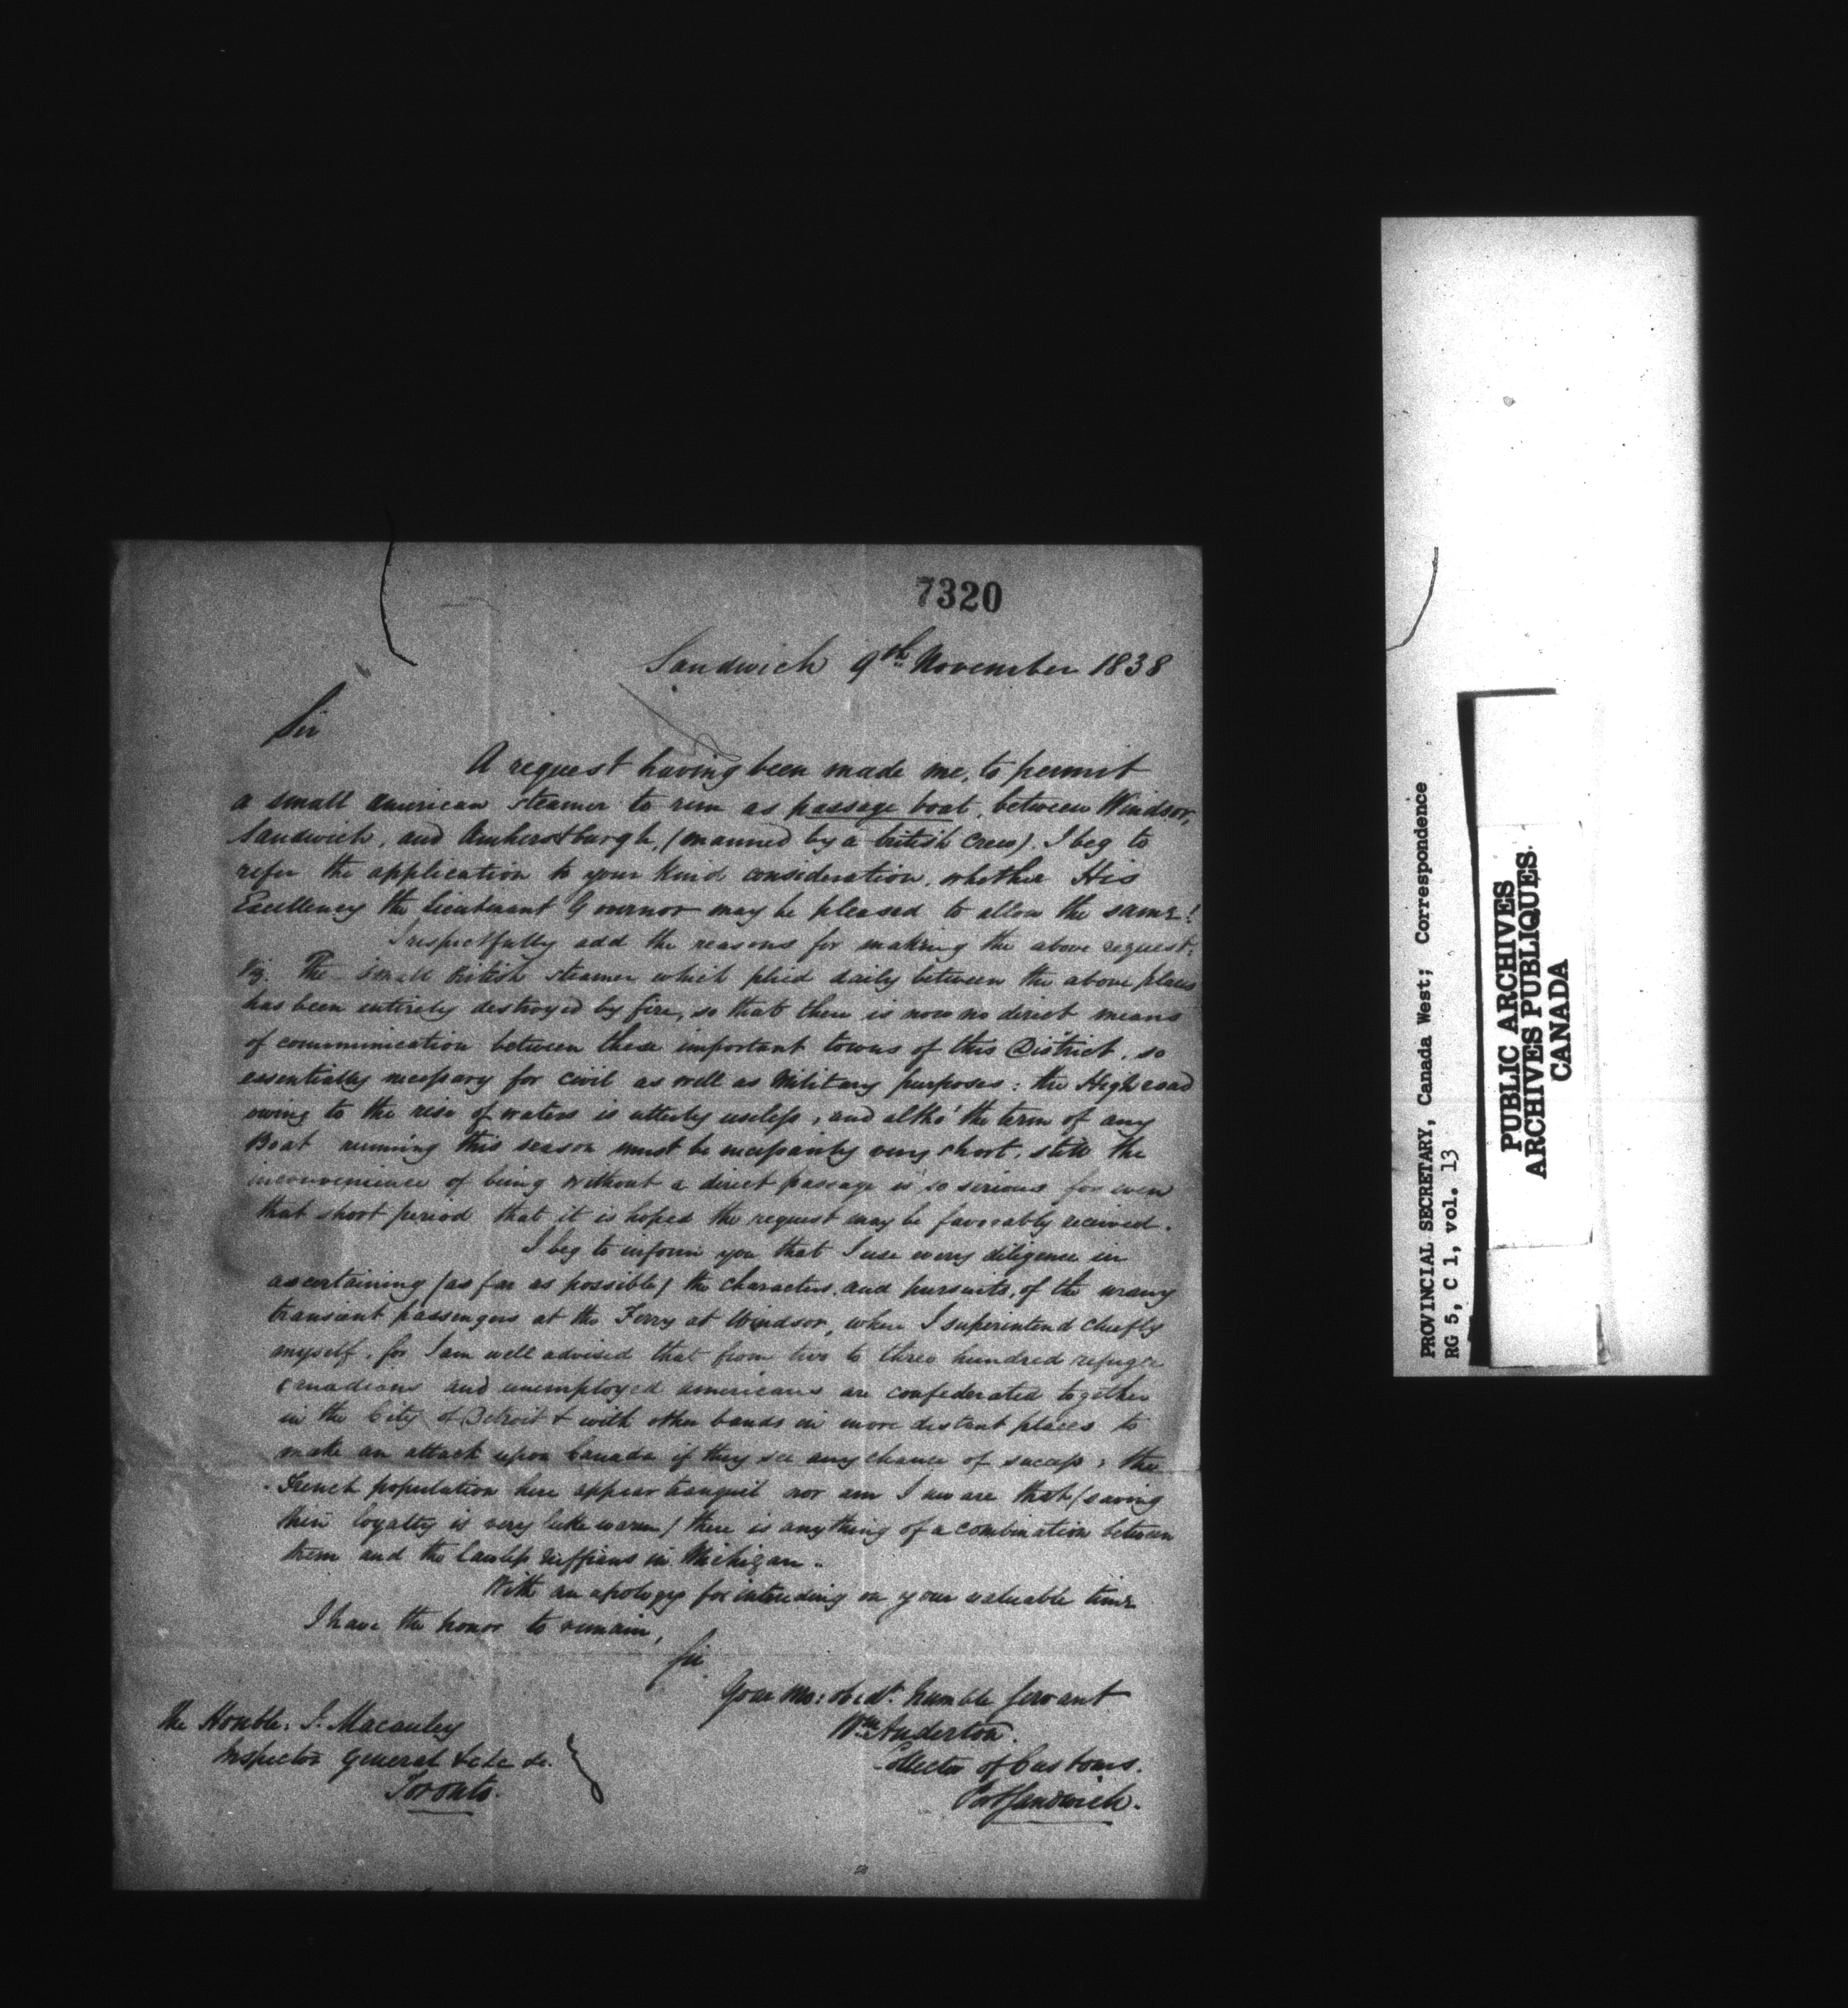 7320
Sandwich 9th November 1838
Sir
A request having been made me, to permit
a small american steamer to run as passage boat, between Windsor,
Sandwich, and Amherstburgh, (manned by a british crew). I beg to
refer the application to your kind consideration, whether His
Excellency the Lieutenant Governor may be pleased to allow the same!
I respectfully add the reasons for making the above request,
Viz. The small British steamer which plied daily between the above places
has been entirely destroyed by fire, so that there is now no direct means
of communication between these important towns of this District, so
essentially necessary for civil as well as Military purposes: the High road
owing to the rise of waters is utterly useless, and altho' the term of any
Boat running this season must be necessarily very short, still the
inconvenience of being without a direct passage is so serious for even
that short period that it is hoped the request may be favorably received.
I beg to inform you that I use every diligence in
ascertaining (as far as possible) the characters, and pursuits, of the many
transient passengers at the Ferry at Windsor, where I superintend chiefly
myself, for I am well advised that from two to three hundred refugee
Canadians and unemployed americans are confederated together
in the City of Detroit & with other bands in more distant places to
make an attack upon Canada if they see any chance of success; the
French population here appear tranquil nor am I aware that (saving
their loyalty is very luke warm) there is anything of a combination between
them and the lawless ruffians in Michigan.
With an apology for intruding on your valuable time
I have the honor to remain,
Sir
Your mo: obedt. humble servant
Wm Anderton.
Collector of Customs.
Port Sandwich.
The Honble: J. Macauley
Inspector General &c &c &c.
Toronto.
PROVINCIAL SECRETARY, Canada West; Correspondence
RG 5, C 1, vol. 13
PUBLIC ARCHIVES
ARCHIVES PUBLIQUES
CANADA